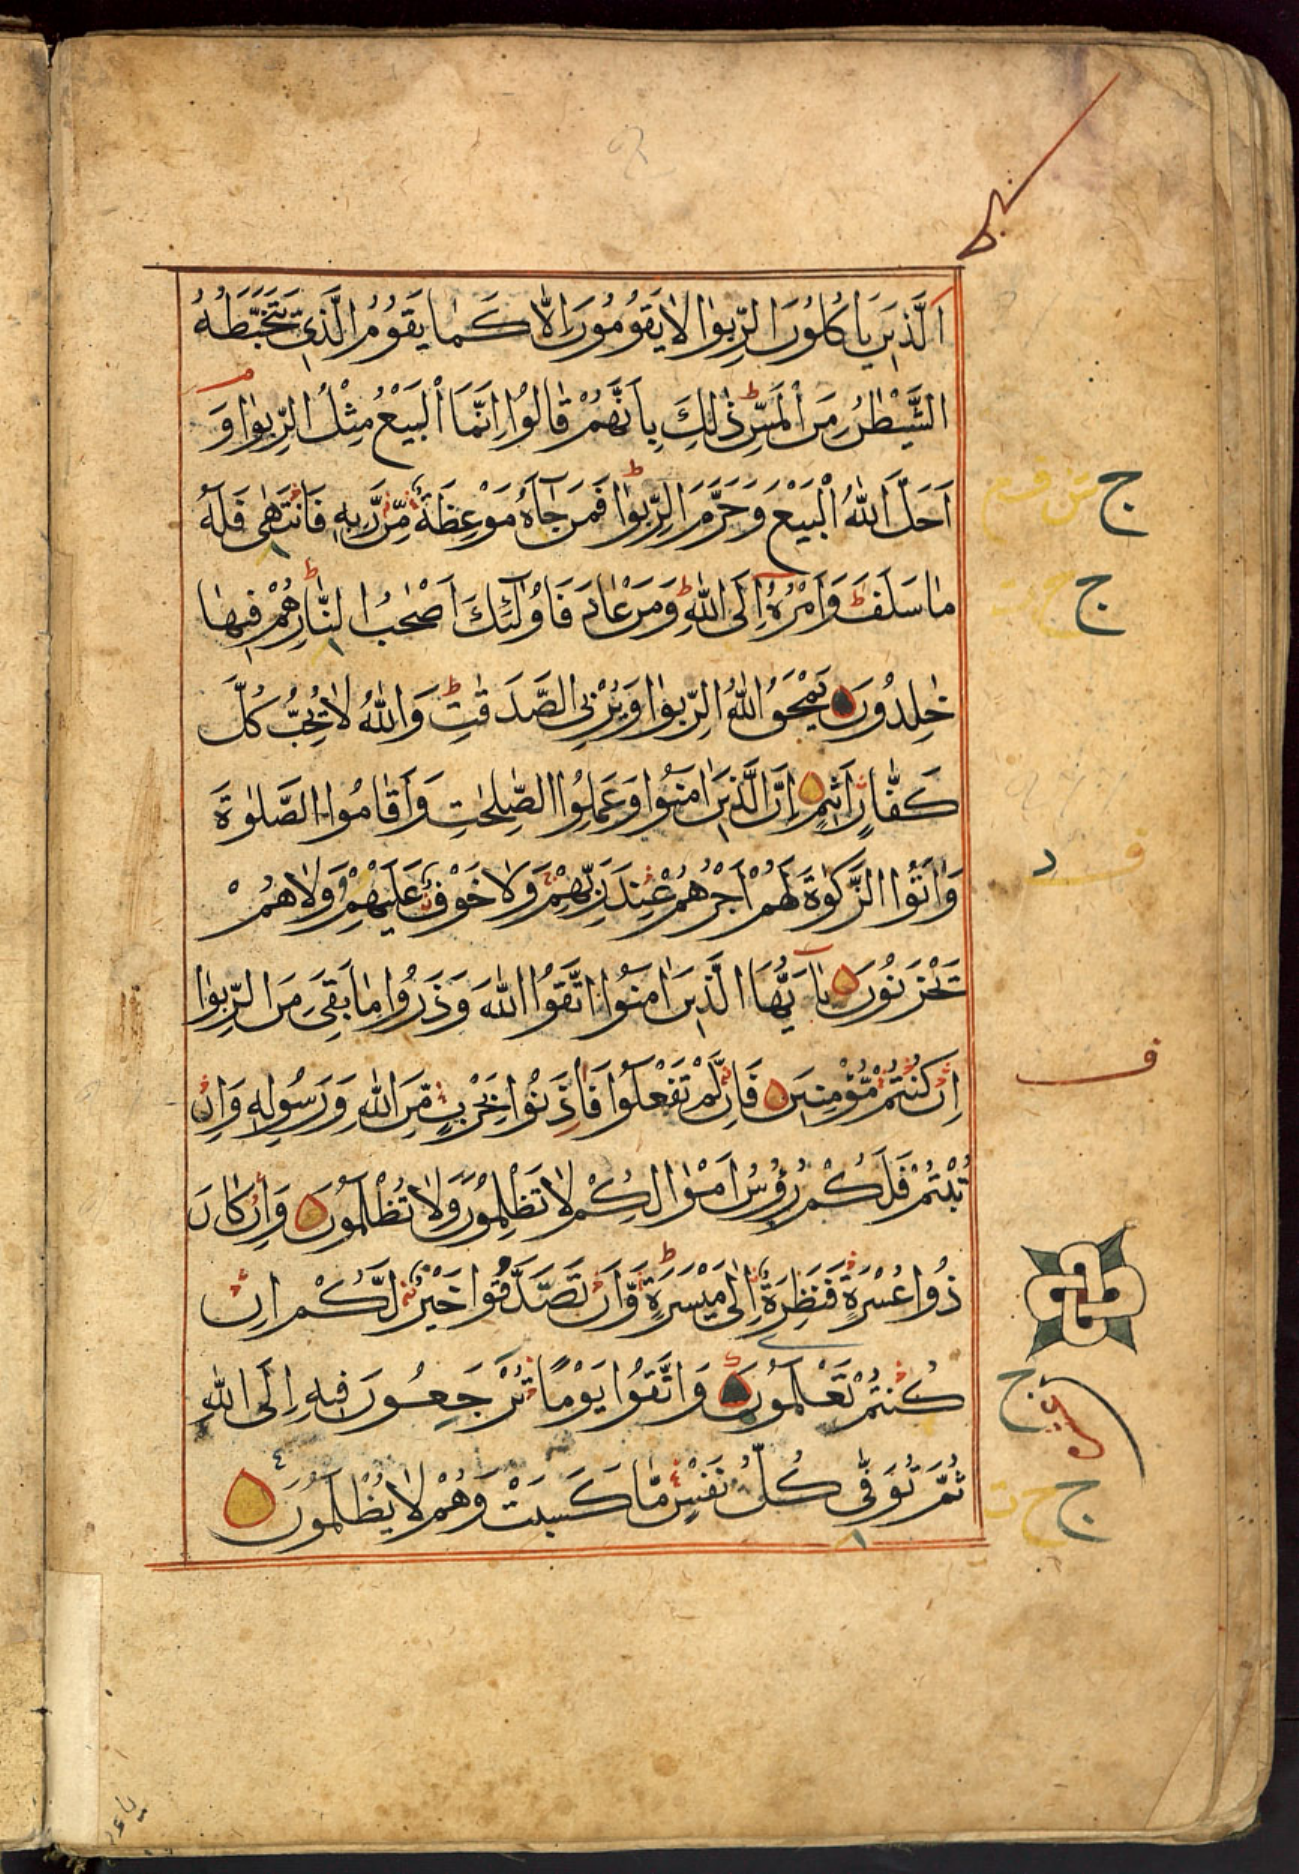 اَلَّذِينَ يَاكُلُونَ الرِّبٰوا لَا يَقُومُونَ اِلَّا كَمَا يَقُومُ الَّذِي يَتَخَبَّطُهُ
الشَّيْطٰنُ مِنَ الْمَسِّ ذٰلِكَ بِاَنَّهُمْ قَالُوا اِنَّمَا الْبَيْعُ مِثْلُ الرِّبٰوا وَ
اَحَلَّ اللّٰهُ الْبَيْعَ وَحَرَّمَ الرِّبٰوا فَمَنْ جَآءَهُ مَوْعِظَةٌ مِّنْ رَّبِّهِ فَانْتَهٰى فَلَهُ
مَا سَلَفَ وَاَمْرُهُ اِلَى اللّٰهِ وَمَنْ عَادَ فَاُولٰئِكَ اَصْحٰبُ النَّارِ هُمْ فِيهَا
خٰلِدُونَ يَمْحَقُ اللّٰهُ الرِّبٰوا وَيُرْبِي الصَّدَقٰتِ وَاللّٰهُ لَا يُحِبُّ كُلَّ
كَفَّارٍ اَثِيمٍ اِنَّ الَّذِينَ اٰمَنُوا وَعَمِلُوا الصّٰلِحٰتِ وَاَقَامُوا الصَّلٰوةَ
وَاٰتَوُا الزَّكٰوةَ لَهُمْ اَجْرُهُمْ عِنْدَ رَبِّهِمْ وَلَا خَوْفٌ عَلَيْهِمْ وَلَا هُمْ
يَحْزَنُونَ يٰآ اَيُّهَا الَّذِينَ اٰمَنُوا اتَّقُوا اللّٰهَ وَذَرُوا مَا بَقِيَ مِنَ الرِّبٰوا
اِنْ كُنْتُمْ مُّؤْمِنِينَ فَاِنْ لَّمْ تَفْعَلُوا فَاذَنُوا بِحَرْبٍ مِّنَ اللّٰهِ وَرَسُولِهِ وَاِنْ
تُبْتُمْ فَلَكُمْ رُؤُسُ اَمْوٰالِكُمْ لَا تَظْلِمُونَ وَلَا تُظْلَمُونَ وَاِنْ كَانَ
ذُوا عُسْرَةٍ فَنَظِرَةٌ اِلٰى مَيْسَرَةٍ وَّاَنْ تَصَّدَّقُوا خَيْرٌ لَّكُمْ اِنْ
كُنْتُمْ تَعْلَمُونَ وَاتَّقُوا يَوْمًا تُرْجَعُونَ فِيهِ اِلَى اللّٰهِ
ثُمَّ تُوَفّٰى كُلُّ نَفْسٍ مَّا كَسَبَتْ وَهُمْ لَا يُظْلَمُونَ